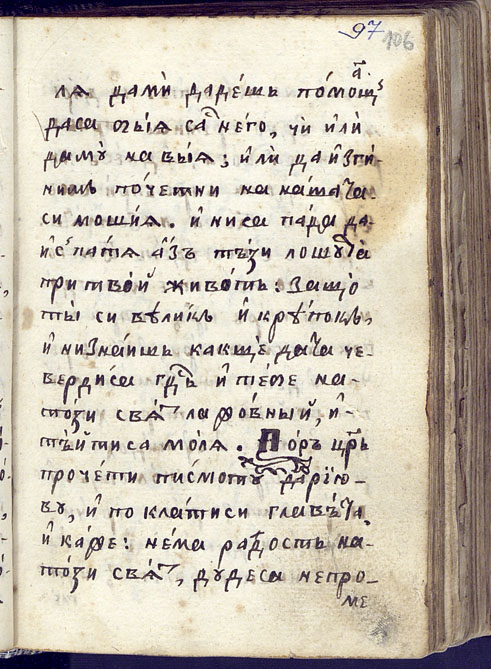 97 106
ля дами дадешь помощъ
даса ѿбїя са него, чи или
даму на вїя; или да изги-
нимь почетни на наша та
си мошїя. и ниса пада да
испатя азъ тъзи лошута
при твой животь: защо
ты си великь и крѹпокь,
и низнаишь какще да та че-
вердиса гдь и тебе на-
този святъ лаѳовный, и-
тъй тиса моля. Поръ црь
прочети писмото дарїю-
ву, и поклатиси глав та
и каже: нема радость на-
този святъ, дудеса непро-
ме